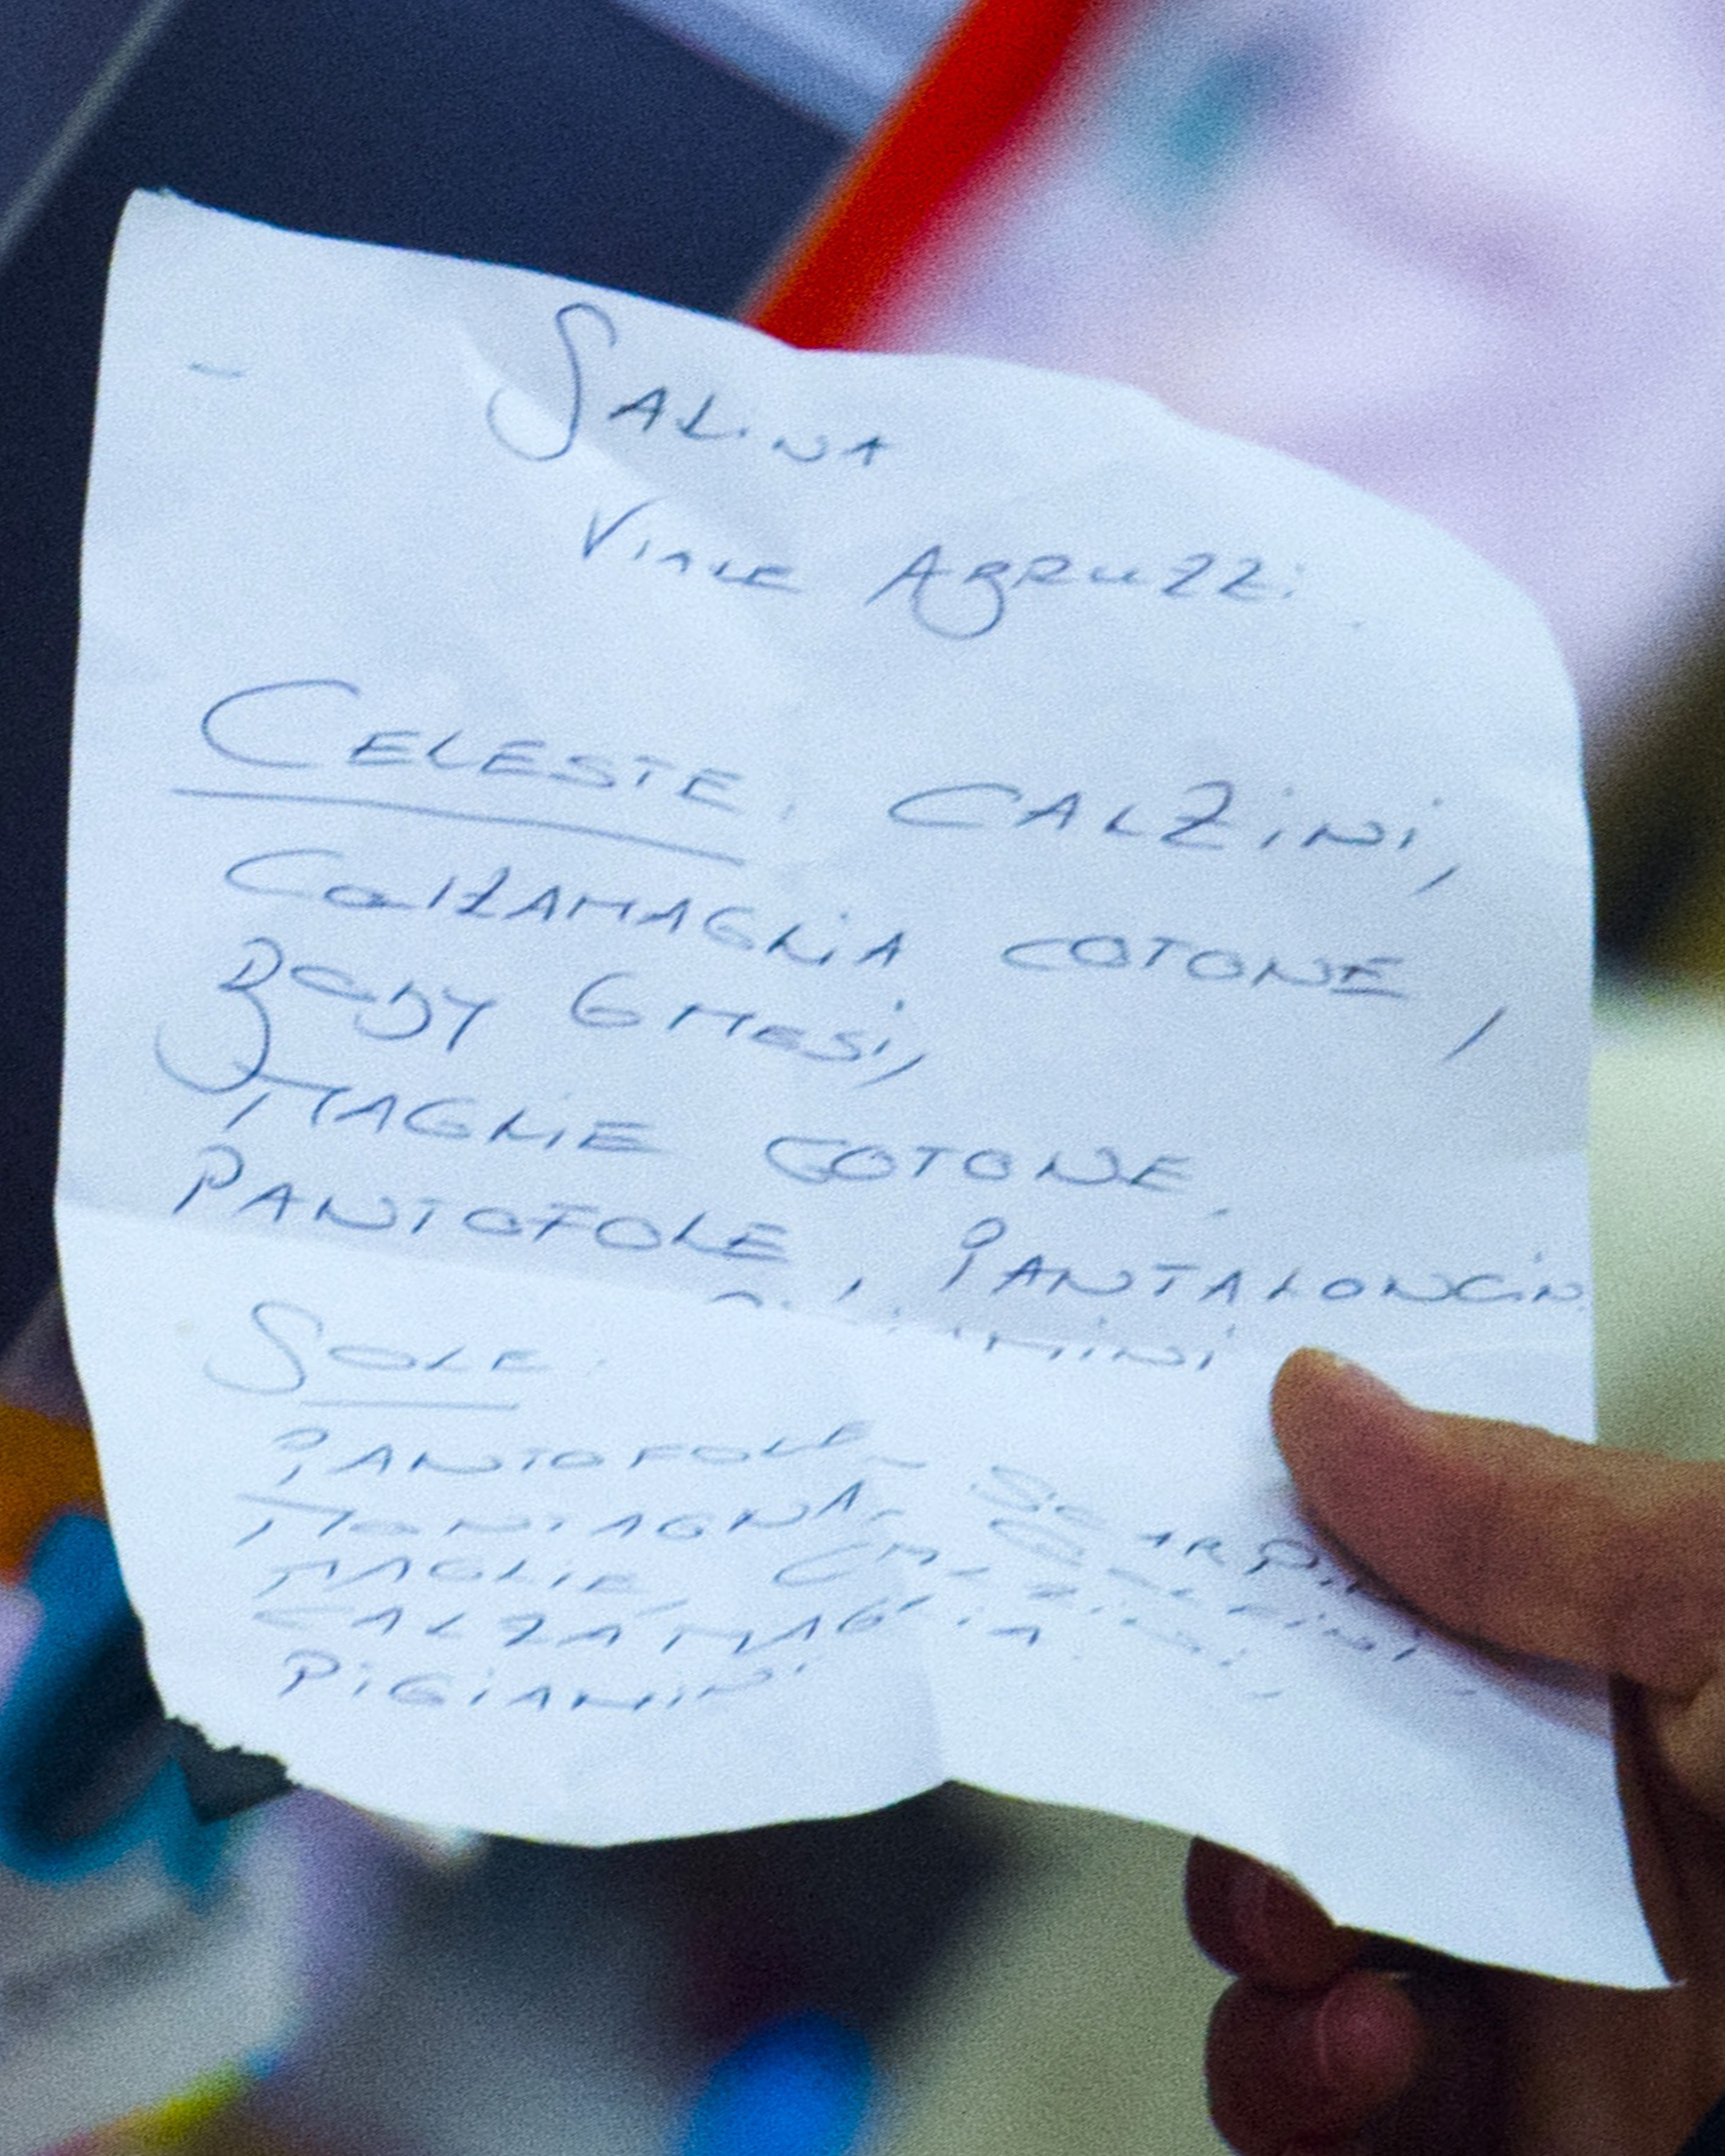 SALINA
VIALE ABRUZZI
CELESTE: CALZINI,
CALZAMAGLIA COTONE,
BODY 6 MESI,
MAGLIE COTONE,
PANTOFOLE, PANTALONCIN
SOLE:
PANTOFOLE
MONTAGNA, SCARPI
MAGLIE, CALZINI,
CALZAMAGLIA
PIGIAMINI